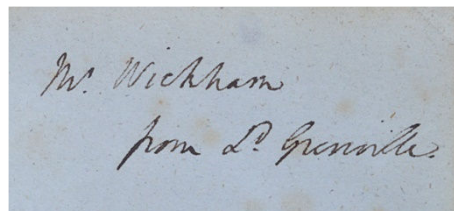 Mr. Wickham
from Ld. Grenville.